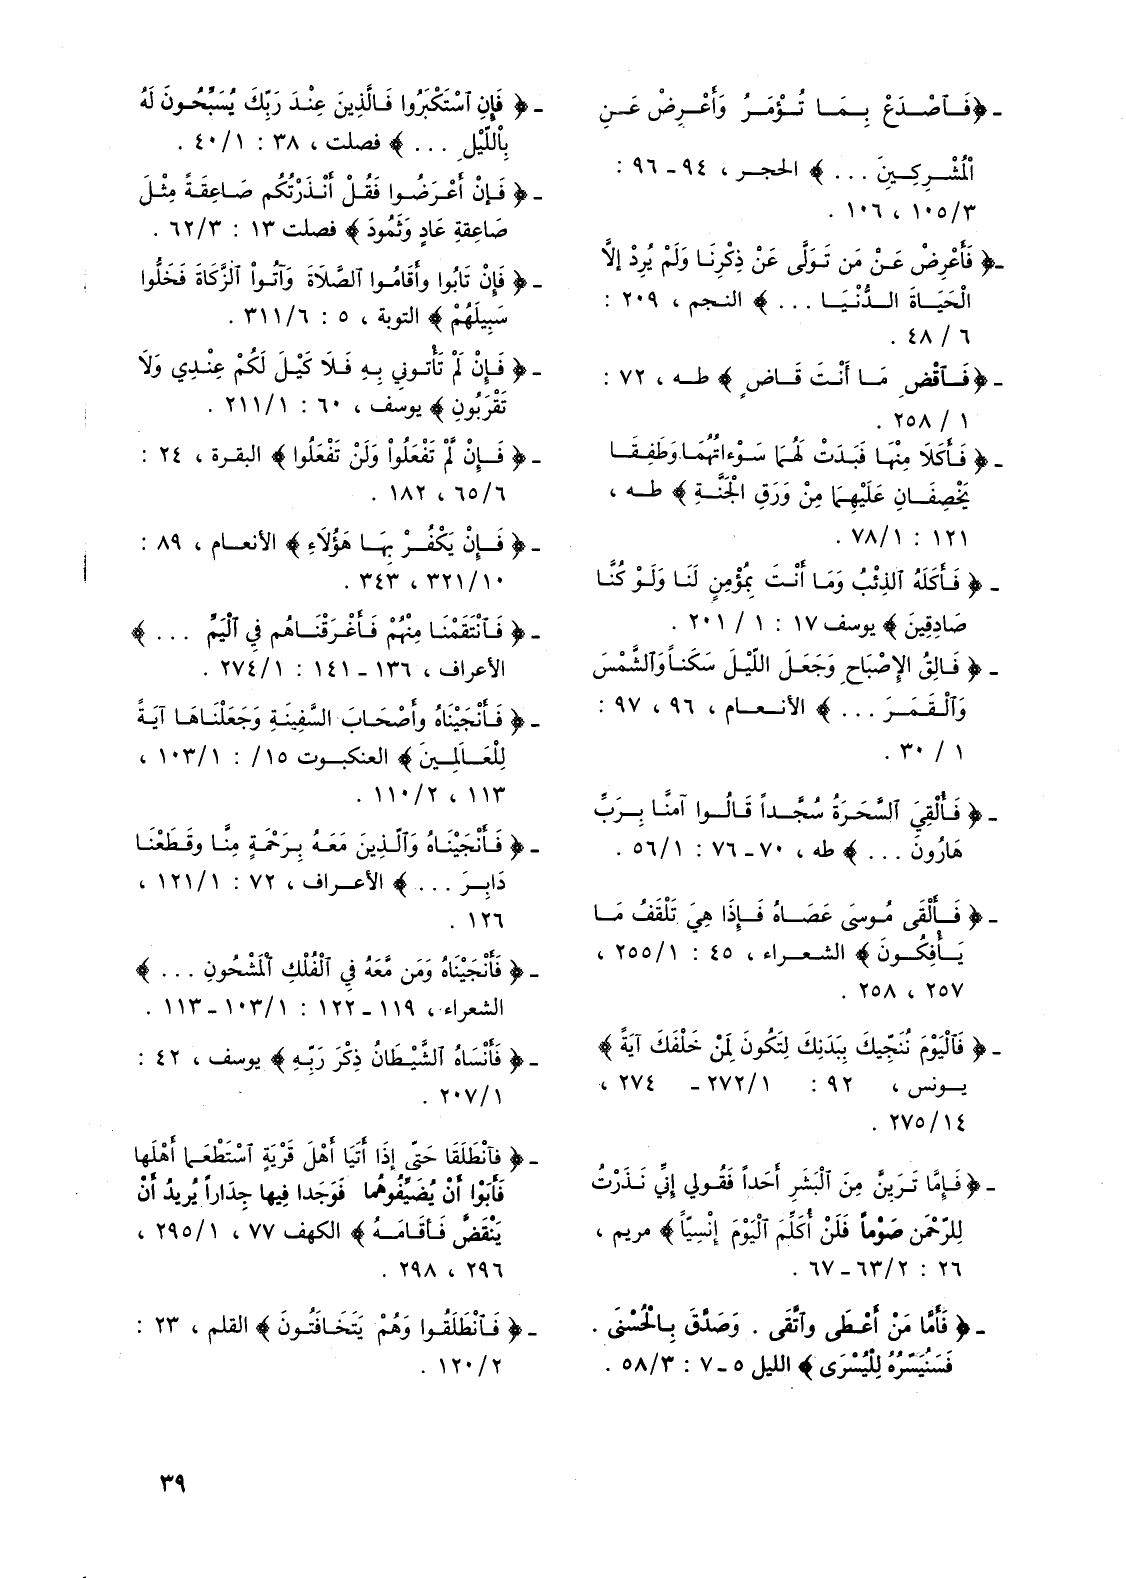 - ﴿فَآصْـدَعْ بِـمَـا تُـؤْمَـرُ وَأَعْـرِضْ عَـنِ
الْمُشْـرِكِـينَ ... ﴾ الحجـر ، ٩٤ـ ٩٦ :
١٠٥/٣ ، ١٠٦ .
-﴿ فَأَعْرِضْ عَـنْ مَن تَـوَلَّى عَنْ ذِكْرِنَـا وَلَمْ يُرِدْ إلاَّ
الْحَيَـاةَ الـدُّنْيَـا ... ﴾ النـجم ، ٢٠٩ :
٦ / ٤٨ .
- ﴿فَـآقْضِ مَـا أَنْتَ قَـاضٍ ﴾ طـه ، ٧٢ :
١ / ٢٥٨ .
- ﴿ فَـأَكَلَا مِنْهَـا فَبَدَتْ لَهُمَا سَـوْءَاتُهُمَا وَطَفِقَـا
يَخْصِفَـانِ عَلَيْهِمَا مِنْ وَرَقِ الْجَنَّـةِ ﴾ طـه ،
١٢١ : ٧٨/١ .
- ﴿ فَـأَكَلَهُ آلذِئْبُ وَمَـا أَنْـتَ بِمُؤْمِنٍ لَنَـا وَلَـوْ كُنَّـا
صَادِقِينَ ﴾ يوسف ١٧ : ١ / ٢٠١ .
- ﴿ فَـالِقُ الإِصْبَاحِ وَجَعَلَ اللَّيْـلَ سَكَناً وَآلشَّمْسَ
وَآلْـقَـمَـرَ ... ﴾ الأنـعـام ، ٩٦ ، ٩٧ :
١ / ٣٠ .
- ﴿ فَـأُلْقِيَ آلسَّحَرَةُ سُجَّـداً قَـالُـوا آمَنَّـا بِـرَبِّ
هَارُونَ ... ﴾ طه ، ٧٠ـ ٧٦ : ٥٦/١ .
- ﴿ فَـأَلْقَى مُـوسَى عَصَـاهُ فَـإِذَا هِيَ تَلْقَفُ مَـا
يَـأْفِكُـونَ ﴾ الشـعـراء ، ٤٥ : ٢٥٥/١ ،
٢٥٧ ، ٢٥٨ .
- ﴿ فَآلْيَوْمَ نُنَجِّيكَ بِبَدَنِكَ لِتَكُونَ لِمَنْ خَلْفَكَ آيَةً ﴾
يـونس ، ٩٢ : ٢٧٢/١ ـ ٢٧٤ ،
٢٧٥/١٤ .
- ﴿ فَـإِمَّا تَـرَيِنَّ مِنَ آلْبَشَرِ أَحَداً فَقُـولي إِنِّي نَـذَرْتُ
لِلرَّحْمَنِ صَوْماً فَلَنْ أُكَلِّمَ آلْيَوْمَ إِنْسِيّاً ﴾ مريم ،
٢٦ : ٦٣/٢ـ ٦٧ .
- ﴿ فَأَمَّا مَنْ أَعْـطَى وآتَّقَى . وَصَدَّقَ بِـالْحُسْنَى .
فَسَنُيَسِّرُهُ لِلْيُسْرَى ﴾ الليل ٥ـ ٧ : ٥٨/٣ .
- ﴿ فَإِنِ آسْتَكْبَرُوا فَـالَّذِينَ عِنْـدَ رَبِّكَ يُسَبِّحُـونَ لَهُ
بِاْللَّيْلِ ... ﴾ فصلت ، ٣٨ : ٤٠/١ .
- ﴿ فَـإِنْ أَعْـرَضُـوا فَقُـلْ أَنْـذَرْتُكُم صَـاعِقَـةً مِثْـلَ
صَاعِقةِ عَادٍ وَثَمُودَ ﴾ فصلت ١٣ : ٦٢/٣ .
- ﴿ فَإِنْ تَابُوا وأَقَامُـوا الصَّلَاةَ وَآتُـواْ آلزَّكَاةَ فَخَلُّوا
سَبِيلَهُمْ ﴾ التوبة ، ٥ : ٣١١/٦ .
- ﴿ فَـإِنْ لَمْ تَأْتـوني بِـهِ فَـلَا كَيْـلَ لَكُمْ عِنْـدِي وَلَا
تَقْرَبُونِ ﴾ يوسف ، ٦٠ : ٢١١/١ .
- ﴿ فَـإِنْ لَّمْ تَفْعَلُواْ وَلَنْ تَفْعَلُوا ﴾ البقـرة ، ٢٤ :
٦٥/٦ ، ١٨٢ .
- ﴿ فَـإِنْ يَكْفُـرْ بِهَـا هَؤُلَاءِ ﴾ الأنعـام ، ٨٩ :
٣٢١/١٠ ، ٣٤٣ .
- ﴿ فَـآنْتَقَمْنَـا مِنْهُمْ فَـأَغْـرَقْنَـاهُم فِي آلْيَمِّ ... ﴾
الأعراف ، ١٣٦ ـ ١٤١ : ٢٧٤/١ .
- ﴿ فَـأَنْجَيْنَاهُ وأَصْحَـابَ السَّفِينَـةِ وَجَعَلْنَاهَـا آيَـةً
لِلْعَـالَمِينَ ﴾ العنكبـوت ١٥/ : ١٠٣/١ ،
١١٣ ، ١١٠/٢ .
- ﴿ فَـأَنْجَيْنَـاهُ وَآلَّـذِينَ مَعَـهُ بِـرَحْمَـةٍ مِنَّـا وقَـطَعْنَـا
دَابِـرَ ... ﴾ الأعـراف ، ٧٢ : ١٢١/١ ،
١٢٦ .
- ﴿ فَأَنْجَيْنَاهُ وَمَن مَّعَهُ فِي آلْفُلْكِ آلْمَشْحُونِ ... ﴾
الشعراء ، ١١٩ ـ ١٢٢ : ١٠٣/١ ـ ١١٣ .
- ﴿ فَأَنْسَاهُ آلشَّيْطَانُ ذِكْرَ رَبِّـهِ ﴾ يوسف ، ٤٢ :
٢٠٧/١ .
- ﴿ فآنْطَلَقَا حَتَّى إِذَا أَتَيَا أَهْلَ قَرْيَةٍ آسْتَطْعَـا أَهْلَها
فَأَبَوْا أَنْ يُضَيِّفُوهُمَا فَوَجَدا فِيها جِدَاراً يُرِيدُ أَنْ
يَنْقَضَّ فَـأَقَـامَـهُ ﴾ الكهف ٧٧ ، ٢٩٥/١ ،
٢٩٦ ، ٢٩٨ .
- ﴿ فَـآنْطَلَقُـوا وَهُمْ يَتَخَـافَتُـونَ ﴾ القلم ، ٢٣ :
١٢٠/٢ .
٣٩